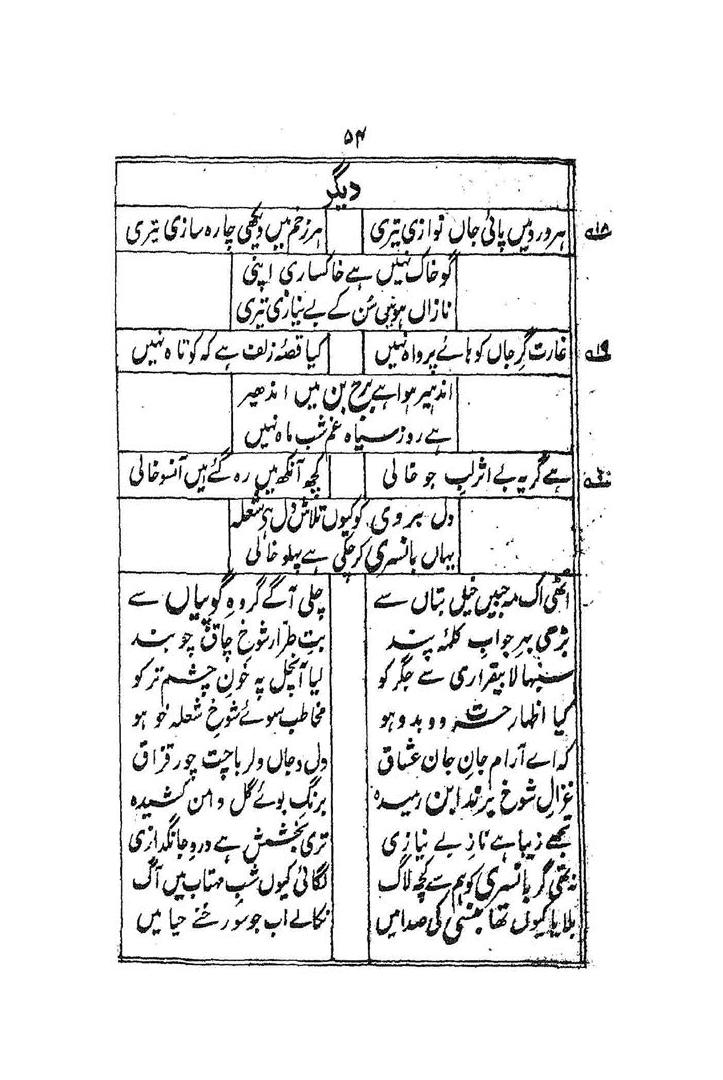 ۵۴
دیگر
۱۸ ہر درد میں پائی جاں نوازی تیری ہر زخم میں دیکھی چارہ سازی تیری
گو خاک نہیں ہے خاکساری اپنی
نازاں ہو نہیں سُن کے بے نیازی تیری
۱۹ غارت گرِ جاں کو ہائے پرواہ نہیں کیا قصۂ زلف ہے کہ کوتاہ نہیں
اندہیر ہوا ہے برج بن میں اندھیر
ہے روز سیاہ غم شب ماہ نہیں
۲۰ ہے گریہ بے اثر لب جو خالی کچھ آنکھ میں رہ گئے ہیں آنسو خالی
دل بروی کو کیوں تلاش دل ہے شعلہ
یہاں بانسری کر چکی ہے پہلو خالی
اٹھی اک مہ جبیں خیل بتاں سے چلی آگے گروہ گوپیاں سے
بڑھی بہر جواب کلمۂ پند بتِ طرار شوخ چاق چوبند
سنبھالا بیقراری سے جگر کو لیا آنچل پہ خونِ چشم تر کو
کیا اظہار حسرت دوبدو ہو مخاطب سوئے شوخ شعلہ خو ہو
کہ اے آرام جانِ جان عشاق دل و جاں دلربا چت چور قزاق
غزالِ شوخ پر بندابن رمیدہ برنگِ بوئے گل دامن کشیدہ
تجھے زیبا ہے ناز بے نیازی تری بخشش ہے درد جانگدازی
نہ تھی گر بانسری کو ہم سے کچھ لاگ لگائی کیوں شب مہتاب میں آگ
بلایا کیوں تھا بنسی کی صدا میں نکالے اب جو سو رخنے حیا میں